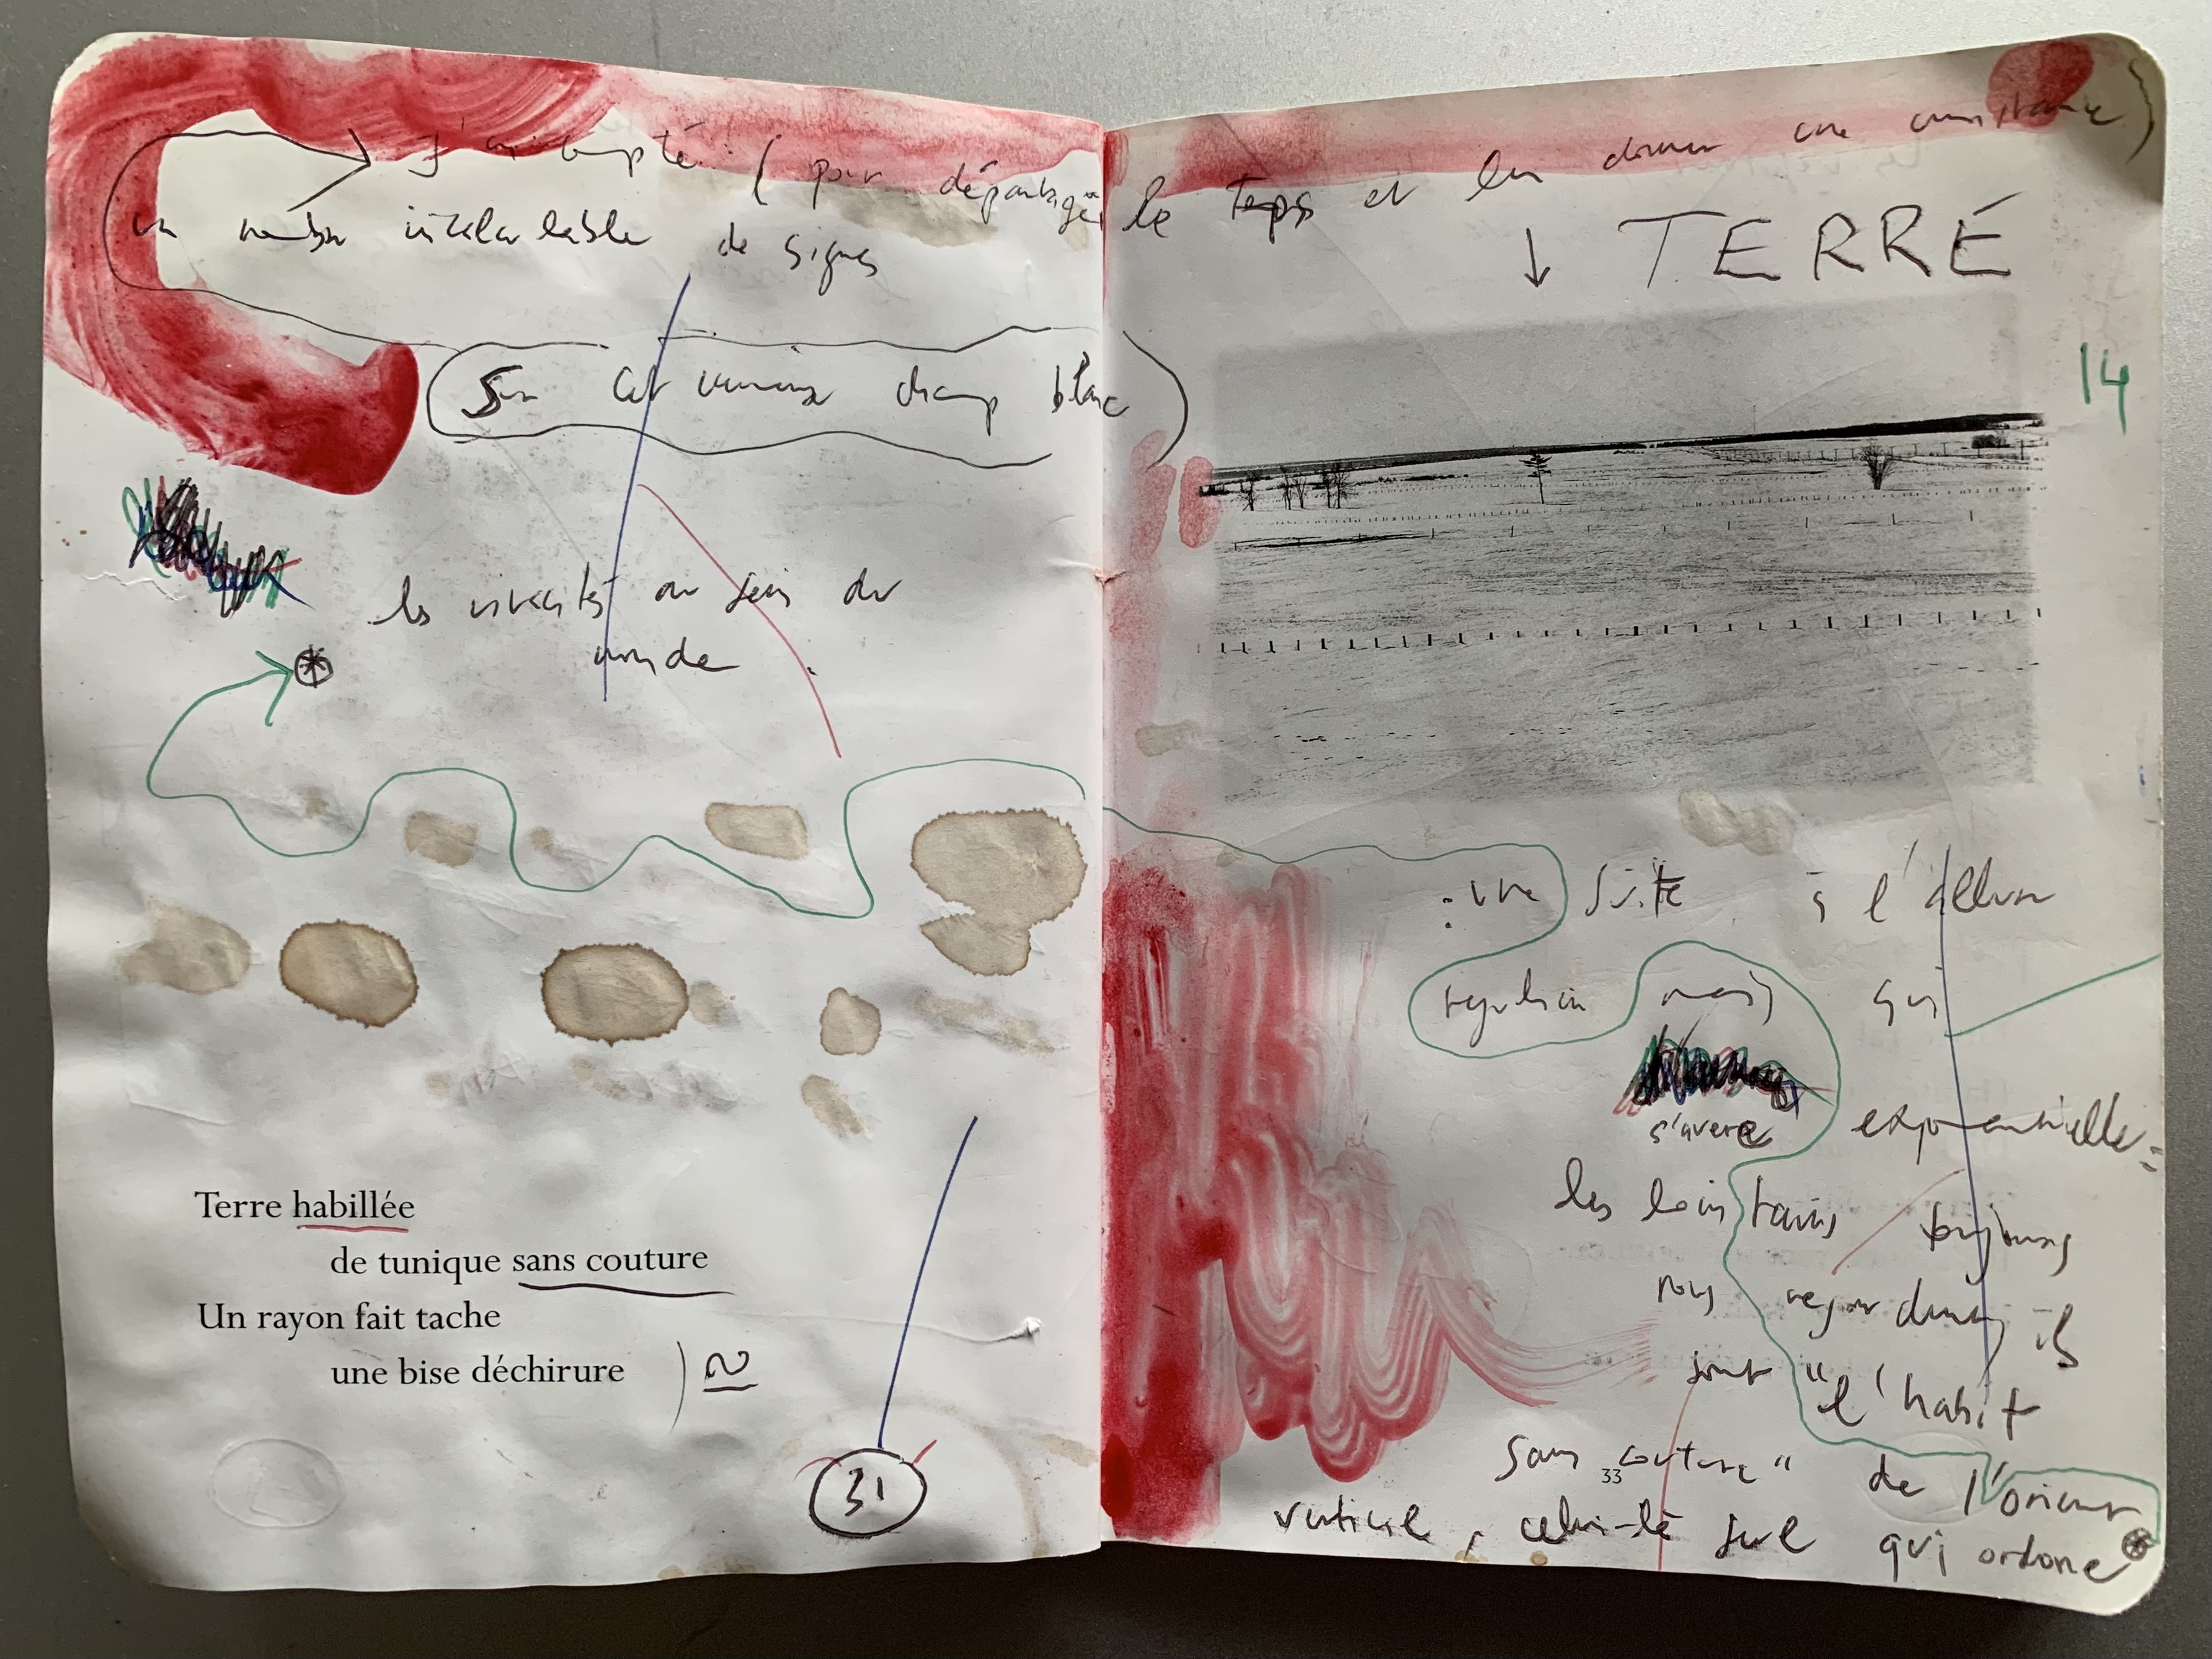 J'ai compté (pour départager le temps et lui donner une consistance)
un nombre incalculable de signes
Sur cet vimineux champ blanc
les vivacités au sein du
monde
Terre habillée
de tunique sans couture
Un rayon fait tache
une bise déchirure
31
TERRÉ
14
: une suite à l'allure
mais qui
s'avère exponentielle
les lointains toujours
nous regardant, ils
sont "l'habit
sans couture" de l'orient
33
vertical, celui-là seul qui ordone